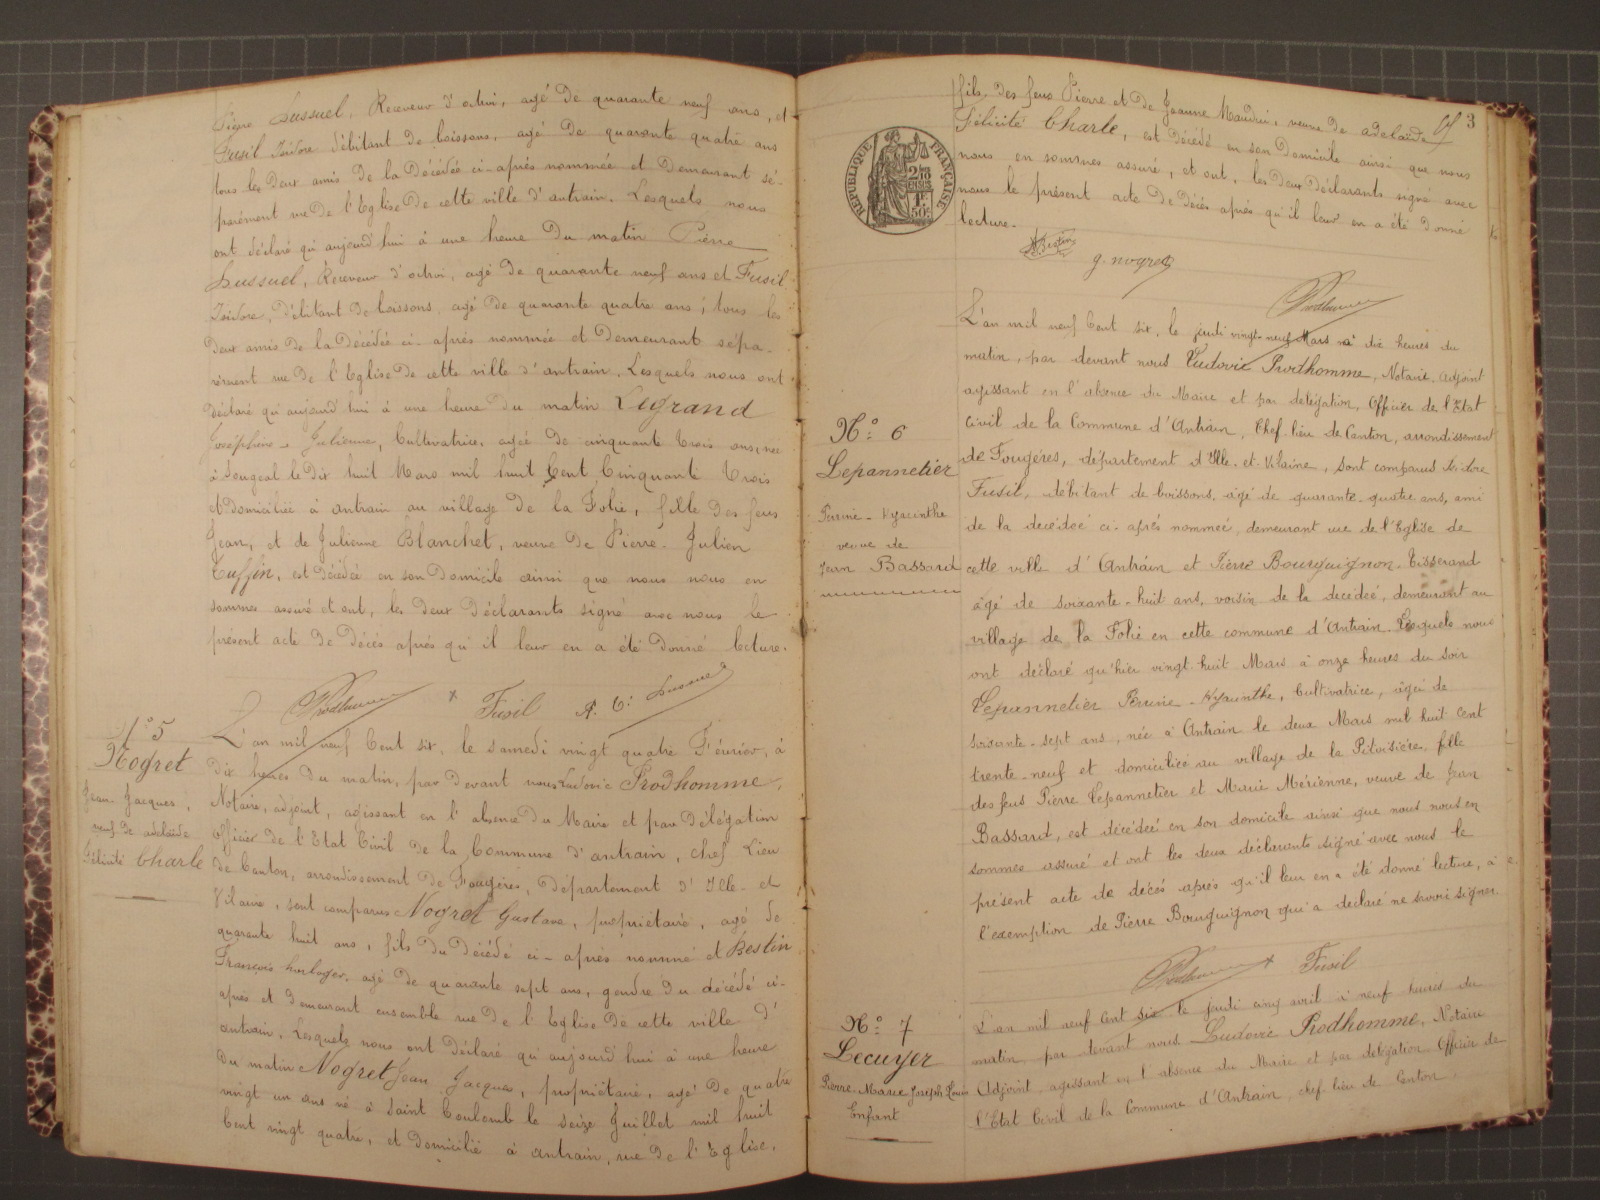 Pierre Dussuel, Receveur d'octroi, agé de quarante neuf ans, et
Fusil Isidore débitant de boissons, agé de quarante quatre ans
tous les deux amis de la Décédée ci-après nommée et demeurant sé-
parément rue de l'Eglise de cette ville d'antrain. Lesquels nous
ont déclaré qu'aujourd'hui à une heure du matin Pierre
Dussuel, Receveur d'octroi, agé de quarante neuf ans et Fusil
Isidore, Débitant de boissons, agé de quarante quatre ans, tous les
deux amis de la Décédée ci-après nommée et demeurant sépa-
rément rue de l'Eglise de cette ville d'antrain. Lesquels nous ont
déclaré qu'aujourd'hui à une heure du matin Legrand
Joséphine-Julienne, Cultivatrice, agée de cinquante trois ans, née
à Sougeal le dix huit Mars mil huit Cent Cinquante trois
et domiciliée à antrain au village de la Folie, fille des feus
Jean, et de Julienne Blanchet, veuve de Pierre-Julien
Tuffin, est décédée en son Domicile ainsi que nous nous en
sommes assuré et ont, les deux déclarants signé avec nous le
présent acte de décès après qu'il leur en a été donné lecture.
Prodhomme x Fusil Dussuel
N° 5
Nogret
Jean-Jacques,
veuf de adelaïde
Félicité Charle
L'an mil neuf Cent six, le samedi vingt quatre Février, à
dix heures du matin, par devant nous Ludovic Prodhomme,
Notaire, adjoint, agissant en l'absence du Maire et par délégation
officier de l'Etat Civil de la Commune d'antrain, chef lieu
de Canton, arrondissement de Fougères, Département d'Ille-et
Vilaine, sont comparus Nogret Gustave, propriétaire, agé de
quarante huit ans, fils du décédé ci-après nommé et Bestin
François horloger, agé de quarante sept ans, gendre du décédé ci-
après et demeurant ensemble rue de l'Eglise de cette ville d'
antrain. Lesquels nous ont déclaré qu'aujourd'hui à une heure
du matin Nogret Jean Jacques, propriétaire, agé de quatre
vingt un ans né à Saint Coulomb le seize Juillet mil huit
Cent vingt quatre, et domicilié à antrain, rue de l'Eglise,
3
fils des feus Pierre et de Jeanne Maudui, veuve de adelaïde
Félicité Charle, est décédé en son domicile ainsi que nous
nous en sommes assuré, et ont, les deux déclarants signé avec
nous le présent acte de décès après qu'il leur en a été donné
lecture.
REPUBLIQUE FRANÇAISE
2/10 EN SUS
1F 50c
Bestin
g. nogret
Prodhomme
N° 6
Lepannetier
Perrine-Hyacinthe
veuve de
Jean Bassard
L'an mil neuf Cent six, le jeudi vingt-neuf Mars à dix heures du
matin, par devant nous Ludovic Prodhomme, Notaire, Adjoint
agissant en l'absence du Maire et par délégation, Officier de l'Etat
Civil de la Commune d'Antrain, Chef-lieu de Canton, arrondissement
de Fougères, département d'Ille-et-Vilaine, sont comparus Isidore
Fusil, débitant de boissons, agé de quarante-quatre ans, ami
de la décédée ci-après nommée, demeurant rue de l'Eglise de
cette ville d'Antrain et Pierre Bourguignon-Tisserand
âgé de soixante-huit ans, voisin de la décédée, demeurant au
village de la Folie en cette commune d'Antrain. Lesquels nous
ont déclaré qu'hier vingt-huit Mars à onze heures du soir
Lepannetier Perrine-Hyacinthe, Cultivatrice, âgée de
soixante-sept ans, née à Antrain le deux Mars mil huit cent
trente-neuf et domiciliée au village de la Pitoisière, fille
des feus Pierre Lepannetier et Marie Mérienne, veuve de Jean
Bassard, est décédée en son domicile ainsi que nous nous en
sommes assuré et ont les deux déclarants signé avec nous le
présent acte de décés après qu'il leur en a été donné lecture, à
l'exemption de Pierre Bourguignon qui a déclaré ne savoir signer.
Prodhomme x Fusil
N° 7
Lecuyer
Pierre-Marie Joseph Louis
Enfant
L'an mil neuf Cent six le jeudi cinq avril à neuf heures du
matin par devant nous Ludovic Prodhomme, Notaire
Adjoint agissant en l'absence du Maire et par délégation Officier de
l'Etat Civil de la Commune d'Antrain, chef-lieu de Canton,